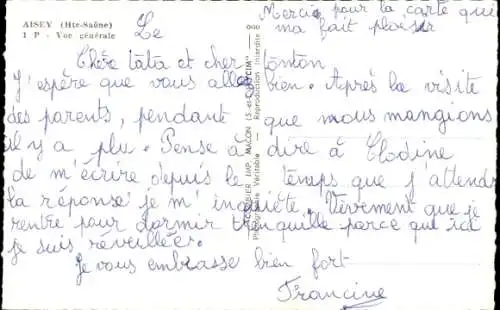 AISEY (Hte-Saône)
1 P - Vue générale
Merci pour la carte qui
m'a fait plaisir
Le
Chère tata et cher tonton
J'espère que vous allez bien. Après la visite
des parents, pendant que nous mangions
il y a plu. Pense à dire à Clodine
de m'écrire depuis le temps que j'attend
la réponse je m'inquiète. Vivement que je
rentre pour dormir tranquille parce que ici
je suis réveillée.
Je vous embrasse bien fort
Francine
COMBIER IMP. MACON (S.-et-L.) "CIM"
Photographie Véritable - Reproduction Interdite